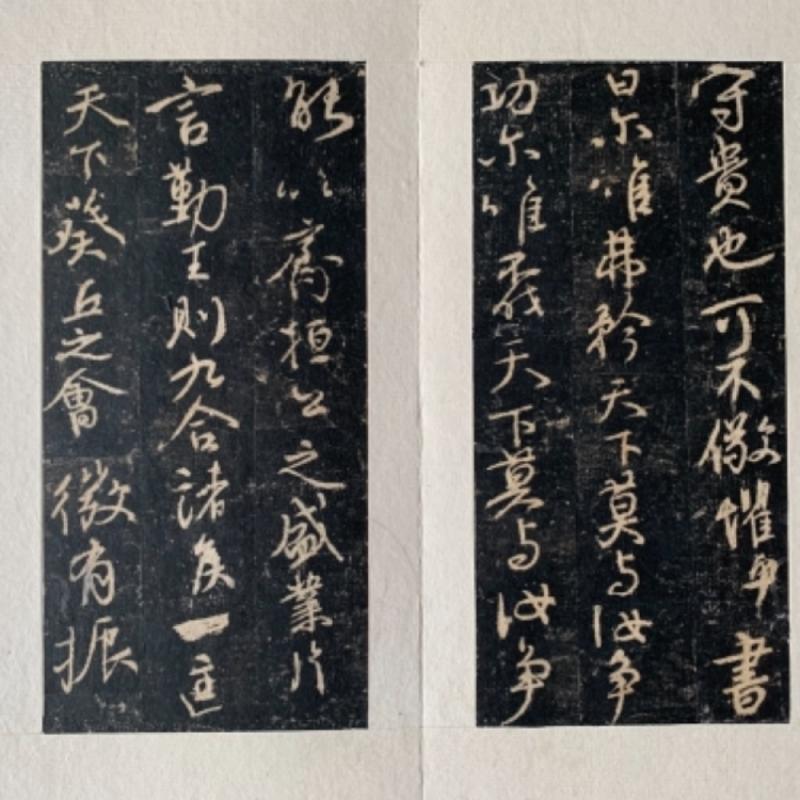 守貴也可不儆懼乎書
曰尔唯弗矜天下莫与汝争
功尔唯不伐天下莫与汝争
能以齊桓公之盛業片
言勤王則九合諸侯一匡
天下葵丘之會微有振